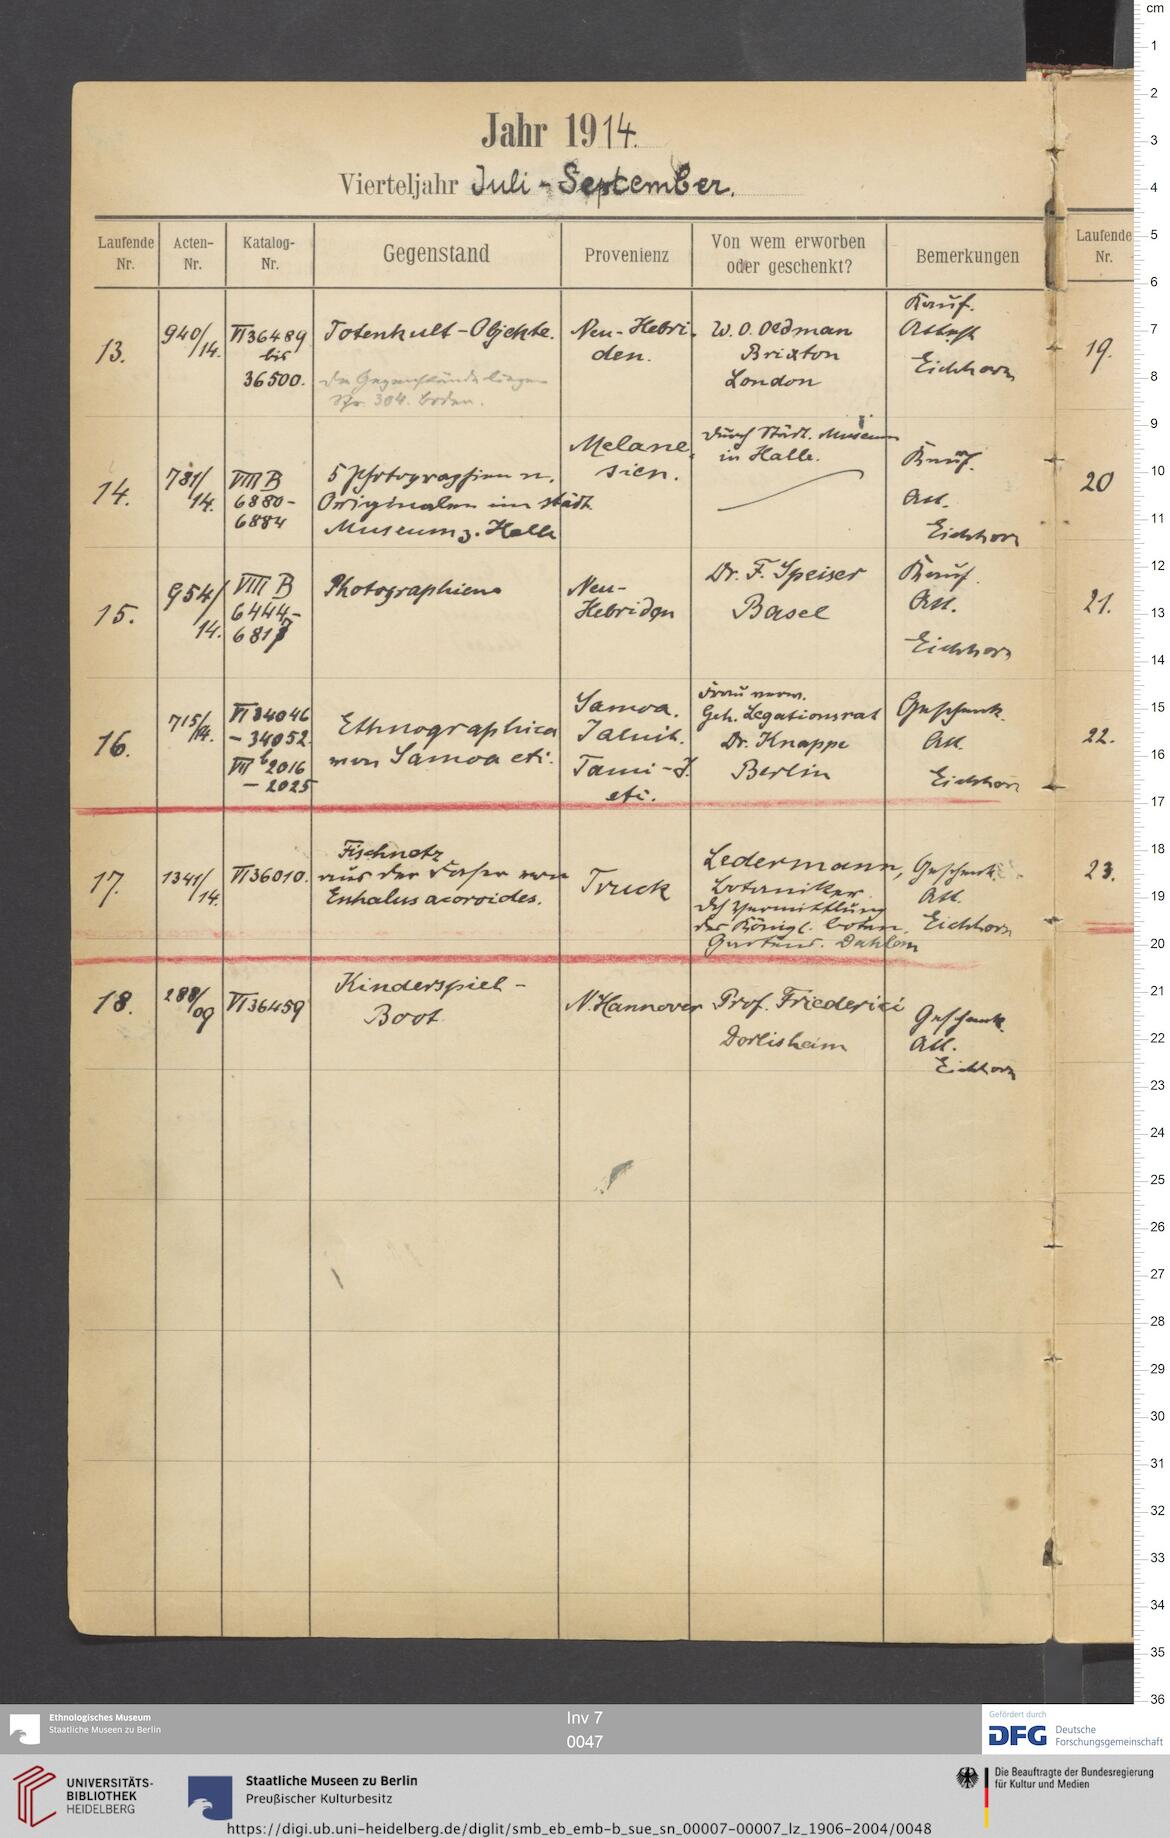 Jahr 1914.
Vierteljahr Juli - September.
Laufende Nr.
Acten-Nr.
Katalog-Nr.
Gegenstand
Provenienz
Von wem erworben oder geschenkt?
Bemerkungen
Laufende Nr.
13.
940/14.
VI 36489
bis
36500.
Totenkult-Objekte.
die Gegenstände liegen
304. Boden.
Neu-Hebri-
den.
W. O. Oldman
Brixton
London
Kauf.
Eichhorn
19.
14.
781/14.
VIII B
6880-
6884
5 Photographien n.
Originalen im städt.
Museum z. Halle
Melane-
sien.
durch Städt. Museum
in Halle.
Kauf.
All.
Eichhorn
20
15.
954/14.
VIII B
6444-
6817
Photographien
Neu-
Hebriden
Dr. F. Speiser
Basel
Kauf.
All.
Eichhorn
21.
16.
715/14.
VI 34046
- 34052.
VII b 2016
- 2025
Ethnographica
von Samoa etc.
Samoa.
Jaluit.
Tami-I.
etc.
Frau verw.
Geh. Legationsrat
Dr. Knappe
Berlin
Geschenk.
All.
Eichhorn
22.
17.
1341/14.
VI 36010.
Fischnetz
aus der Faser von
Enhalus acoroides.
Truck
Ledermann,
Botaniker
dch Vermittlung
des Königl. botan.
Gartens. Dahlem
Geschenk.
All.
Eichhorn
23.
18.
288/09
VI 36459
Kinderspiel-
Boot
N. Hannover
Prof. Friederici
Dorlisheim
Geschenk.
All.
Eichhorn
cm
1
2
3
4
5
6
7
8
9
10
11
12
13
14
15
16
17
18
19
20
21
22
23
24
25
26
27
28
29
30
31
32
33
34
35
36
Ethnologisches Museum
Staatliche Museen zu Berlin
Inv 7
0047
Gefördert durch
DFG Deutsche
Forschungsgemeinschaft
UNIVERSITÄTS-
BIBLIOTHEK
HEIDELBERG
Staatliche Museen zu Berlin
Preußischer Kulturbesitz
Die Beauftragte der Bundesregierung
für Kultur und Medien
https://digi.ub.uni-heidelberg.de/diglit/smb_eb_emb-b_sue_sn_00007-00007_lz_1906-2004/0048